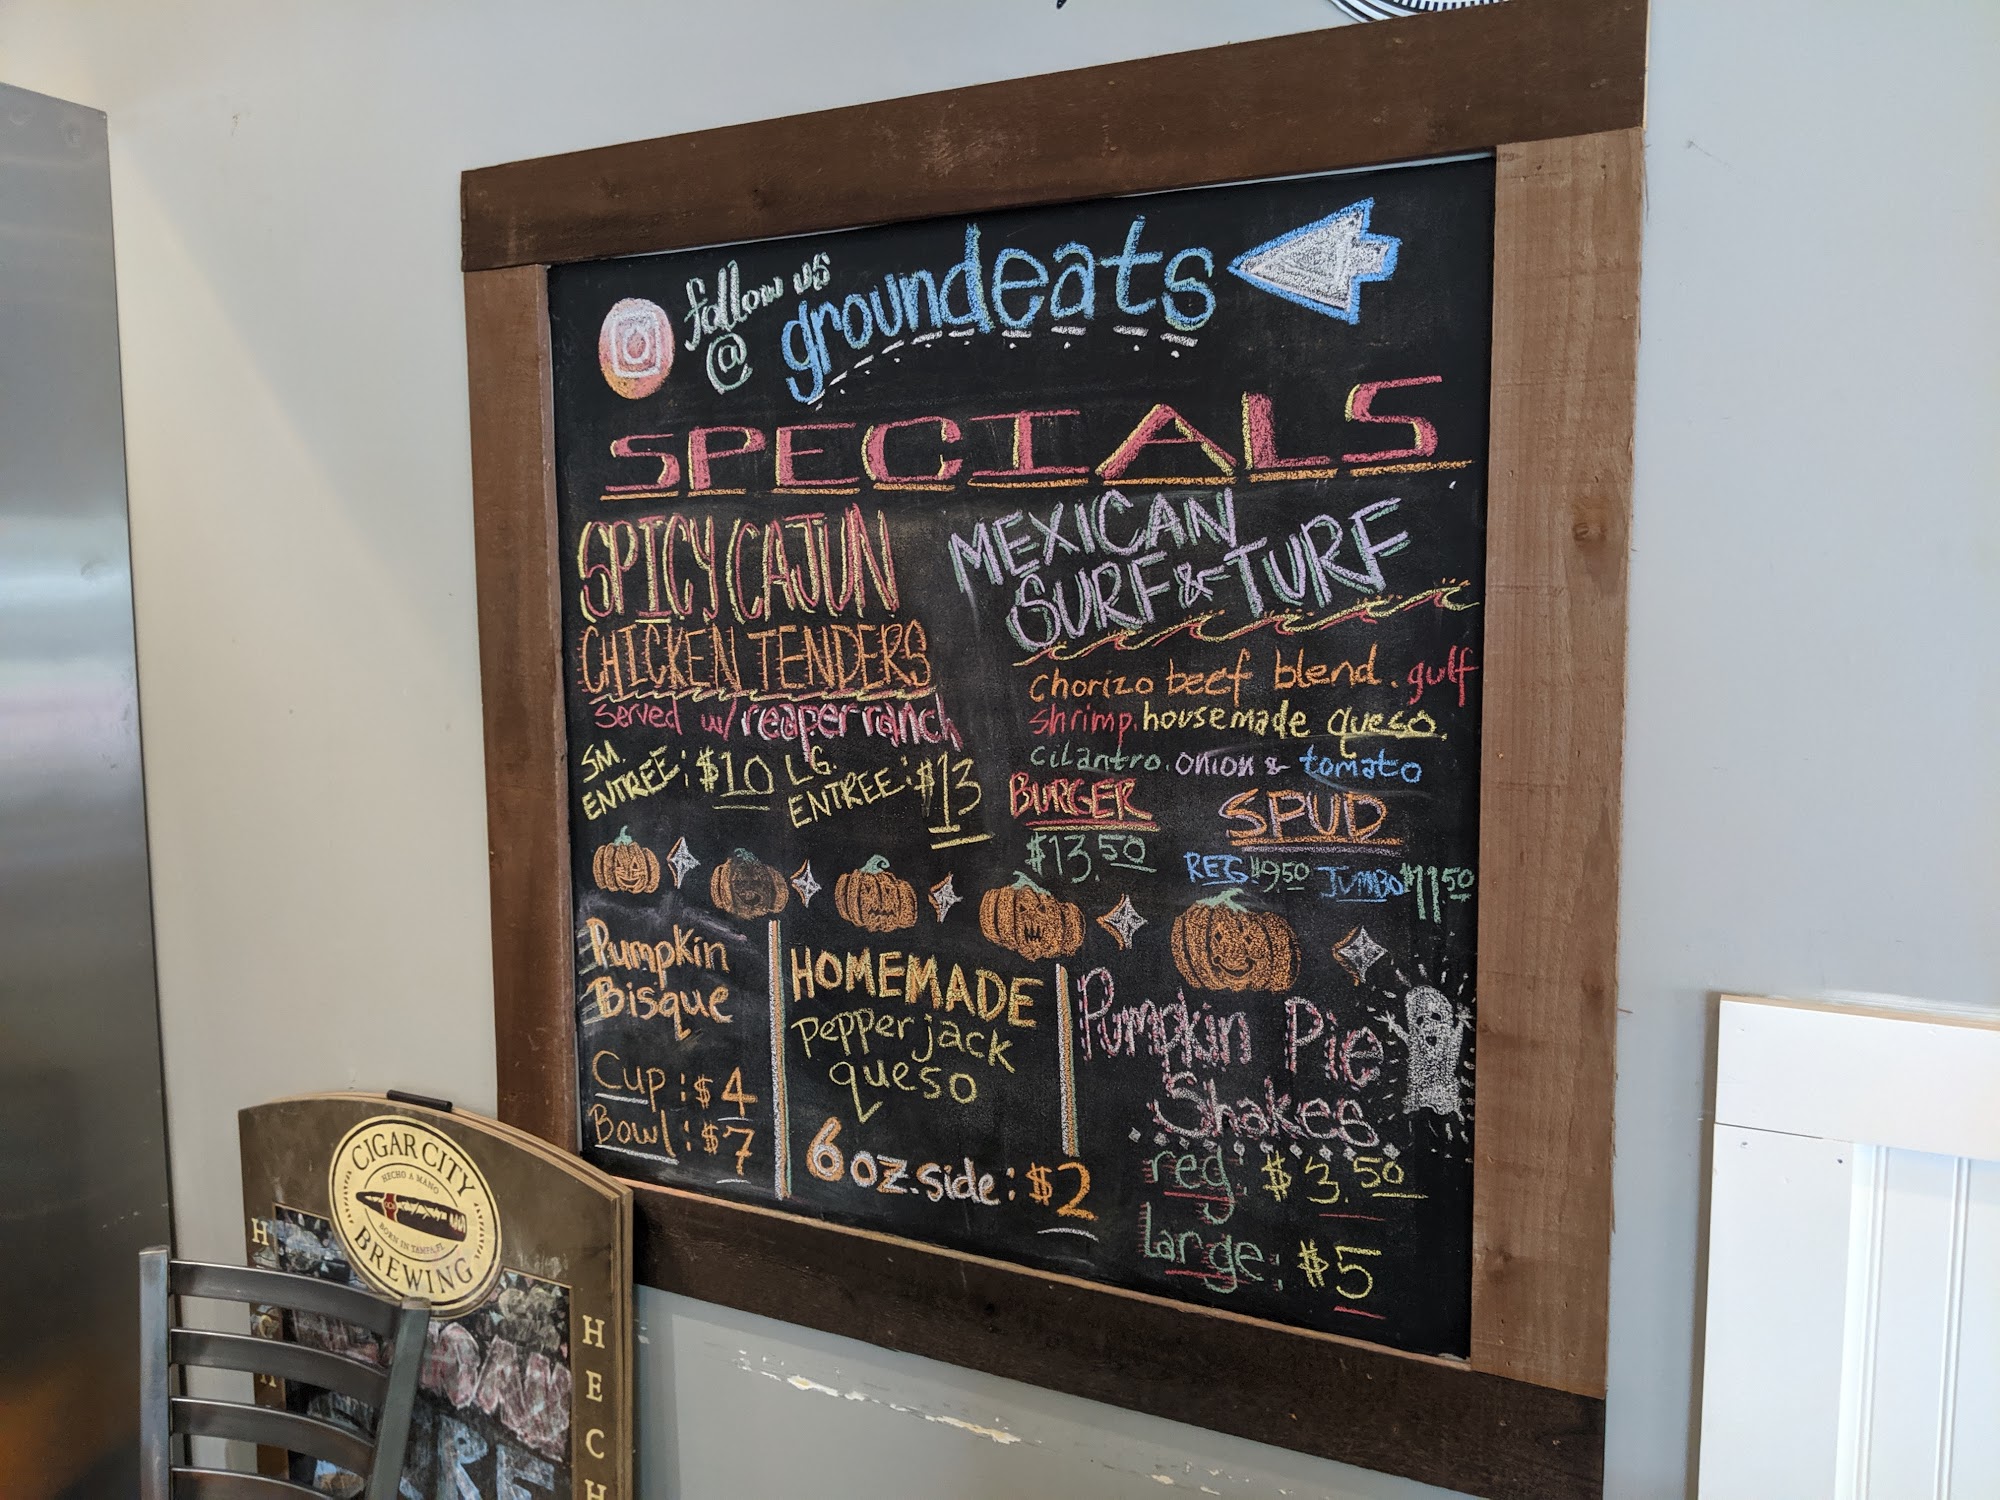 follow us
@ groundeats
SPECIALS
SPICY CAJUN
CHICKEN TENDERS
served w/ reaper ranch
SM. ENTREE: $10 LG. ENTREE: $13
MEXICAN
SURF & TURF
chorizo beef blend. gulf
shrimp. housemade queso.
cilantro. onion & tomato
BURGER
$13.50
SPUD
REG $9.50 JUMBO $11.50
Pumpkin
Bisque
Cup: $4
Bowl: $7
HOMEMADE
Pepperjack
queso
6 oz. side: $2
Pumpkin Pie
Shakes
reg: $3.50
large: $5
CIGAR CITY
HECHO A MANO
BORN IN TAMPA, FL
BREWING
HECH